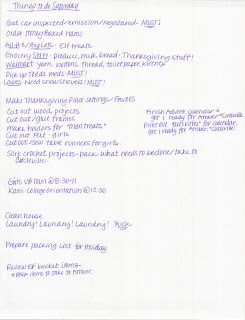 Things to do Saturday
Get car inspected/emission/registered - MUST!
Order Honey Baked Ham
/Big Lots - Elf treats
Grocery Store - produce, milk, bread - Thanksgiving stuff!
Walmart yarn, buttons, thread, toilet paper, Kleenex
Pick up meds - MUST!
Lowes: Need snow shovels! MUST!
Make Thanksgiving Place settings/Favors
Cut out wood projects
Cut out/glue frames
make holders for "than treats"
Cut out felt - girls
Cut out/sew table runners for girls
Sort crochet projects - pack what needs to be done/take to
Finish Advent calendar -
get 1 ready for Amber
Print out "activities" for calendar
get 1 ready for Amber
Girls VB Town @ 8:30-11
Kami - College orientation @ 12:30
Clean house
Laundry! Laundry! Laundry! Yuck
Prepare packing List for Holiday
Review Elf bucket items -
* Pack items to take to Amber.